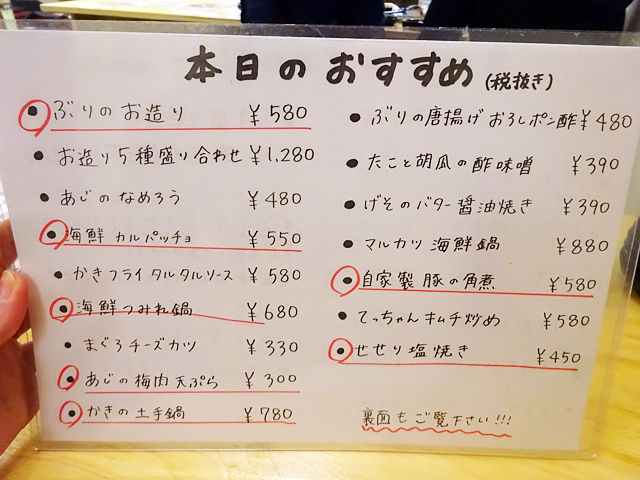 本日のおすすめ (税抜き)
● ぶりのお造り ¥580
● お造り5種盛り合わせ ¥1,280
● あじのなめろう ¥480
● 海鮮カルパッチョ ¥550
● かきフライタルタルソース ¥580
● 海鮮つみれ鍋 ¥680
● まぐろチーズカツ ¥330
● あじの梅肉天ぷら ¥300
● かきの土手鍋 ¥780
● ぶりの唐揚げおろしポン酢 ¥480
● たこと胡瓜の酢味噌 ¥390
● げそのバター醤油焼き ¥390
● マルカツ海鮮鍋 ¥880
● 自家製豚の角煮 ¥580
● てっちゃんキムチ炒め ¥580
● せせり塩焼き ¥450
裏面もご覧下さい!!!